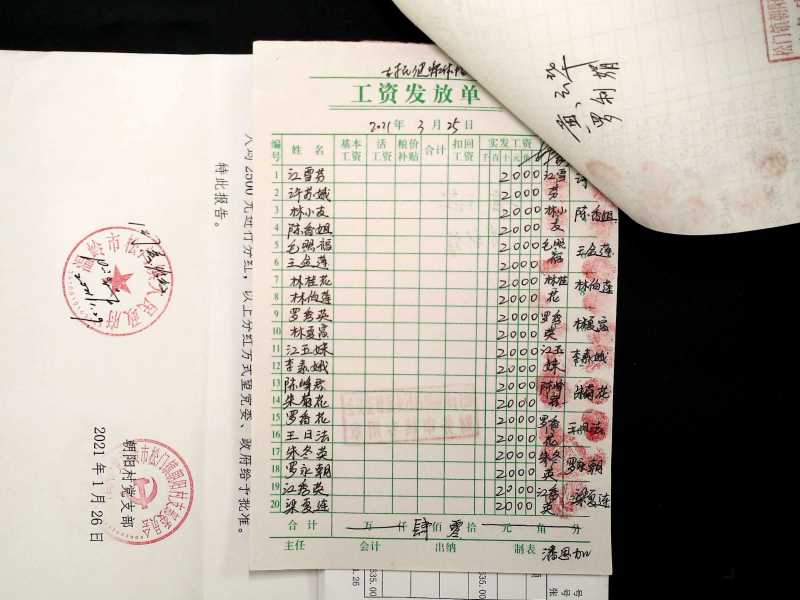 工资发放单
2021年 3 月 25 日
编号 姓名 基本工资 活工资 粮价补贴 合计 扣回工资 实发工资
千 百 十 元 角
1 江雪芬 2000 江雪芬
2 许苏娥 2000
3 林小友 2000 林小友
4 陈香姐 2000 陈香姐
5 毛照福 2000 毛照福
6 王金莲 2000 王金莲
7 林桂花 2000 林桂花
8 林伯莲 2000 林伯莲
9 罗秀英 2000 罗秀英
10 林夏富 2000 林夏富
11 江玉妹 2000 江玉妹
12 李素娥 2000 李素娥
13 陈峰君 2000 陈峰君
14 朱菊花 2000 朱菊花
15 罗香花 2000 罗香花
16 王日法 2000 王日法
17 朱冬英 2000 朱冬英
18 罗永朝 2000 罗永朝
19 江秀英 2000 江秀英
20 梁夏连 2000 梁夏连
合计 万 仟 肆 佰 零 拾 元 角 分
主任 会计 出纳 制表 潘恩加
罗利辉
人均2500元进行分红，以上分红方式望党委、政府给予批准。
特此报告。
朝阳村党支部
2021年1月26日